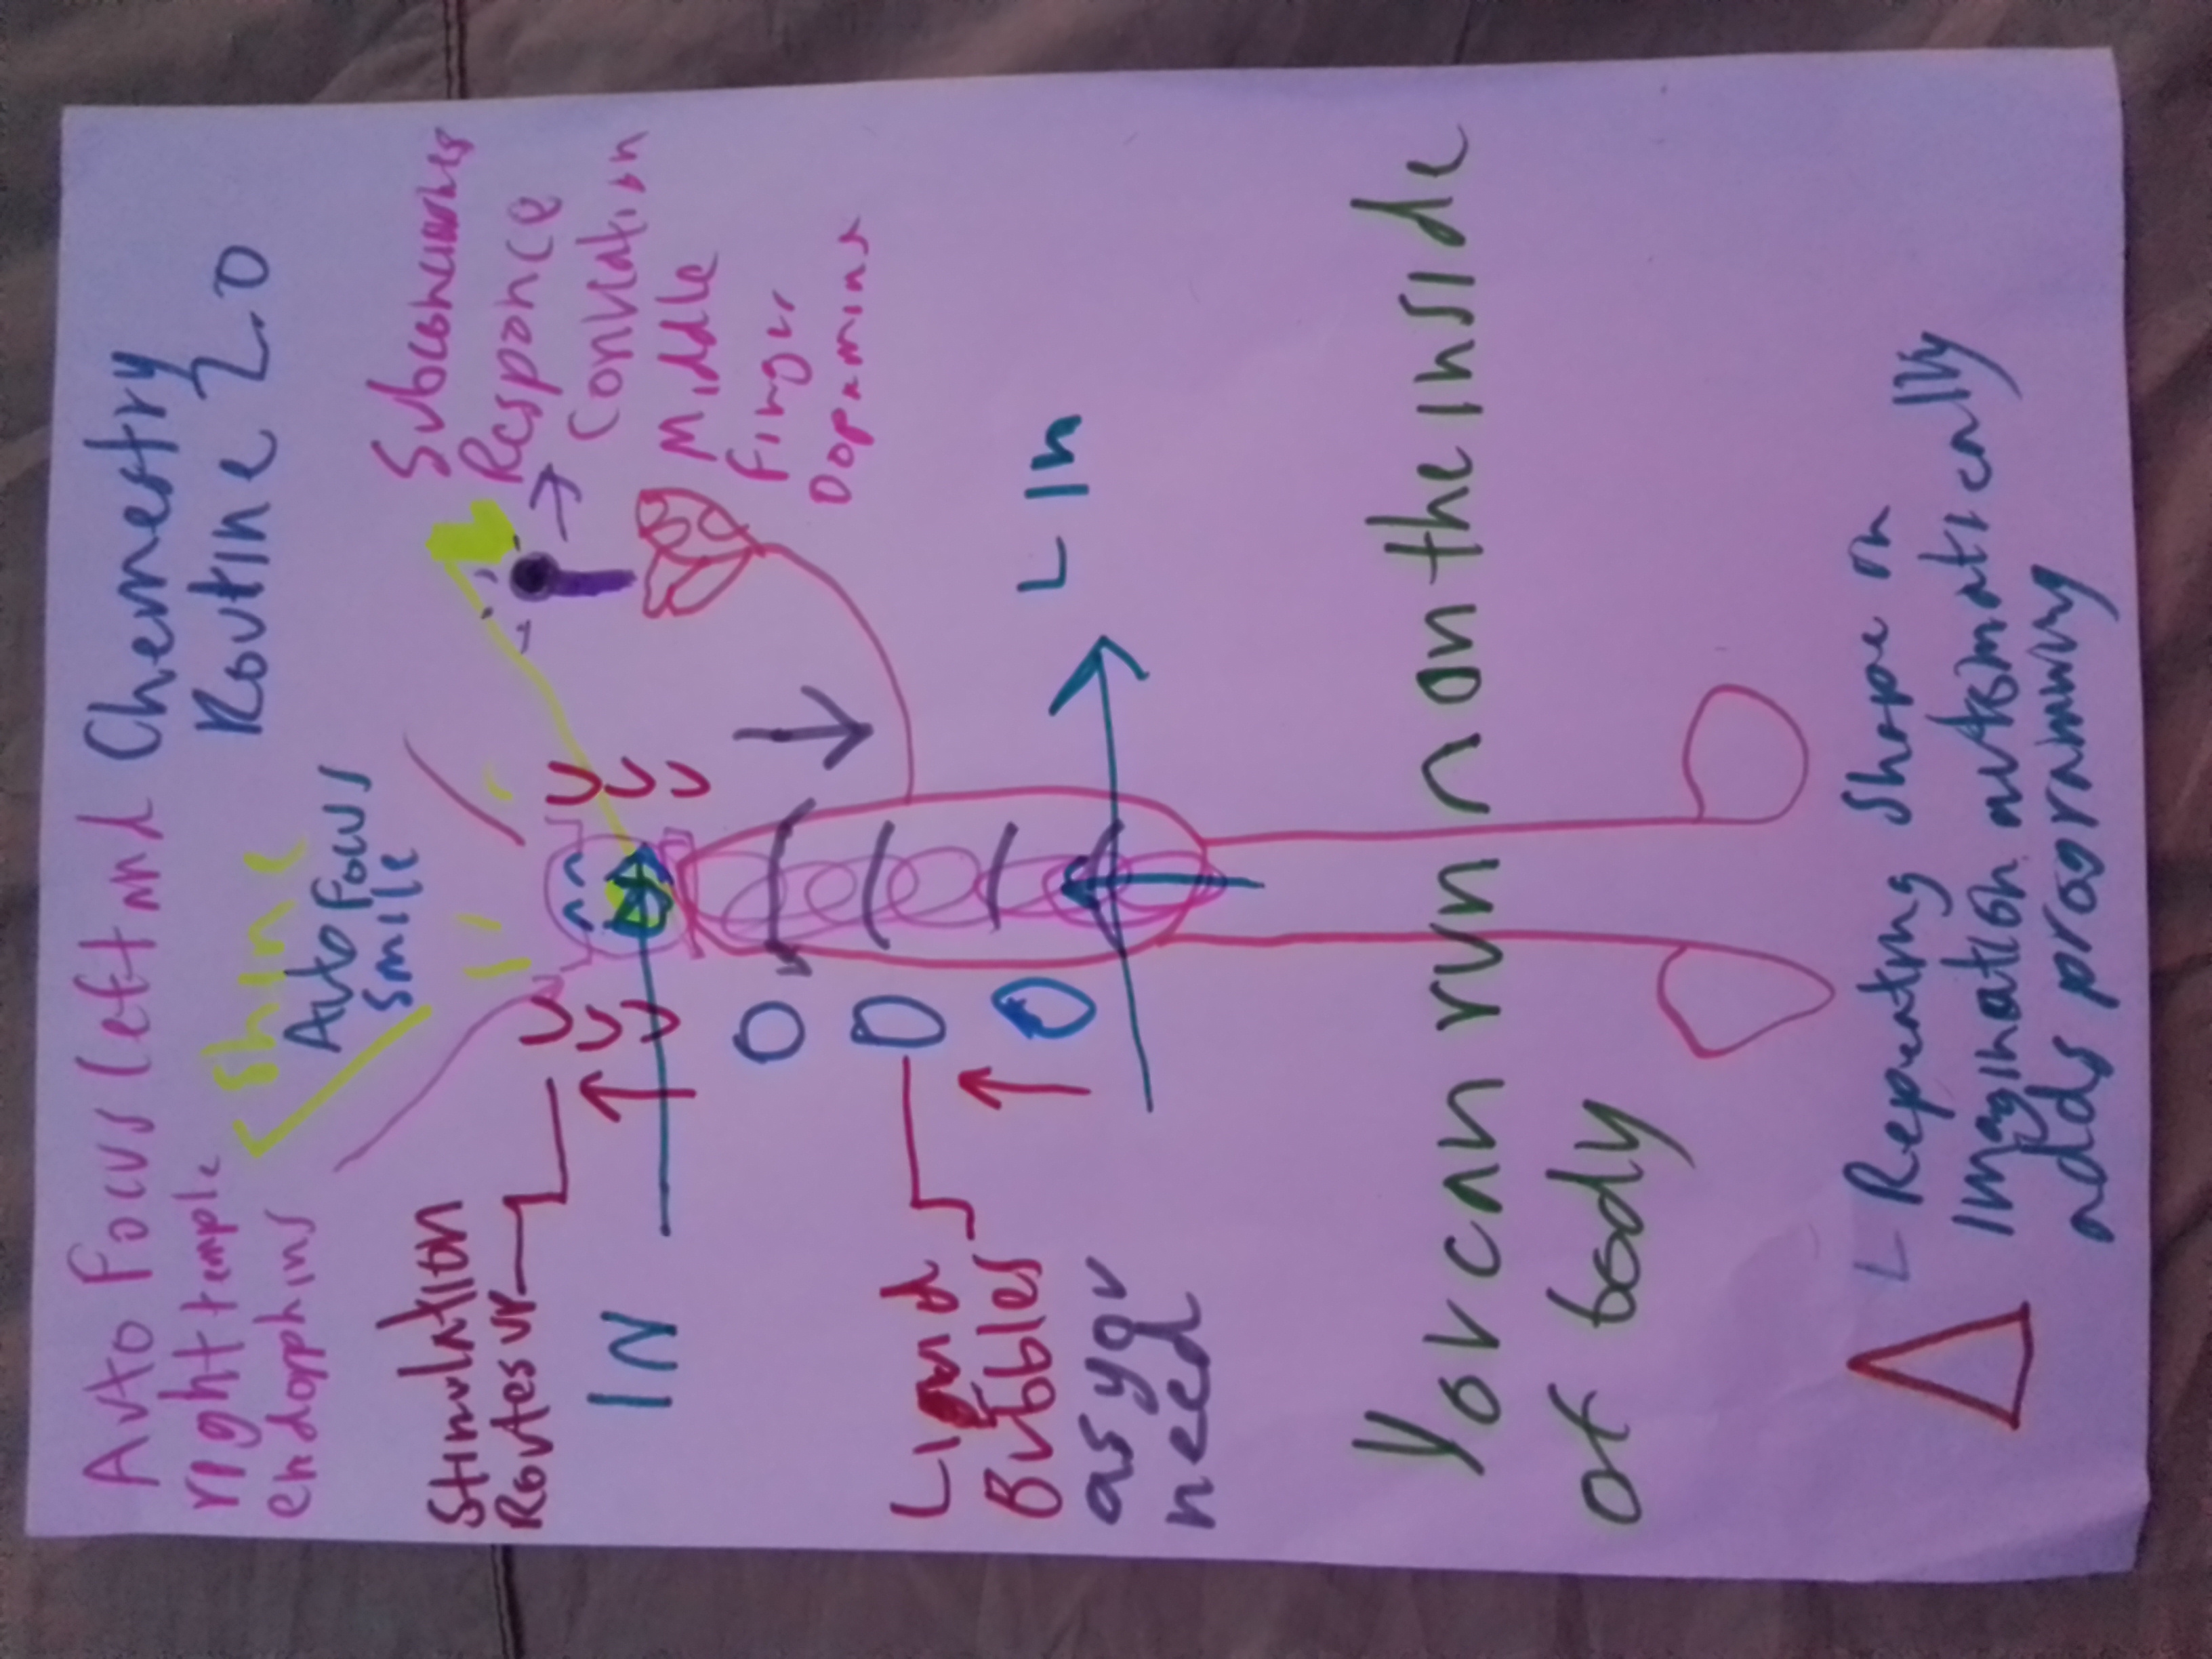 Auto Focus left and
right temple
endorphins
Chemestry
Routine 2.0
Shine
Auto Focus
Smile
Subconscious
Responce
Middle
Finger
Dopamine
Stimulation
Routes ur
IN
L In
Bubbles
as you
need
You can run n on the inside
of body
L Repeating Shape on
Imagination automatically
adds programming